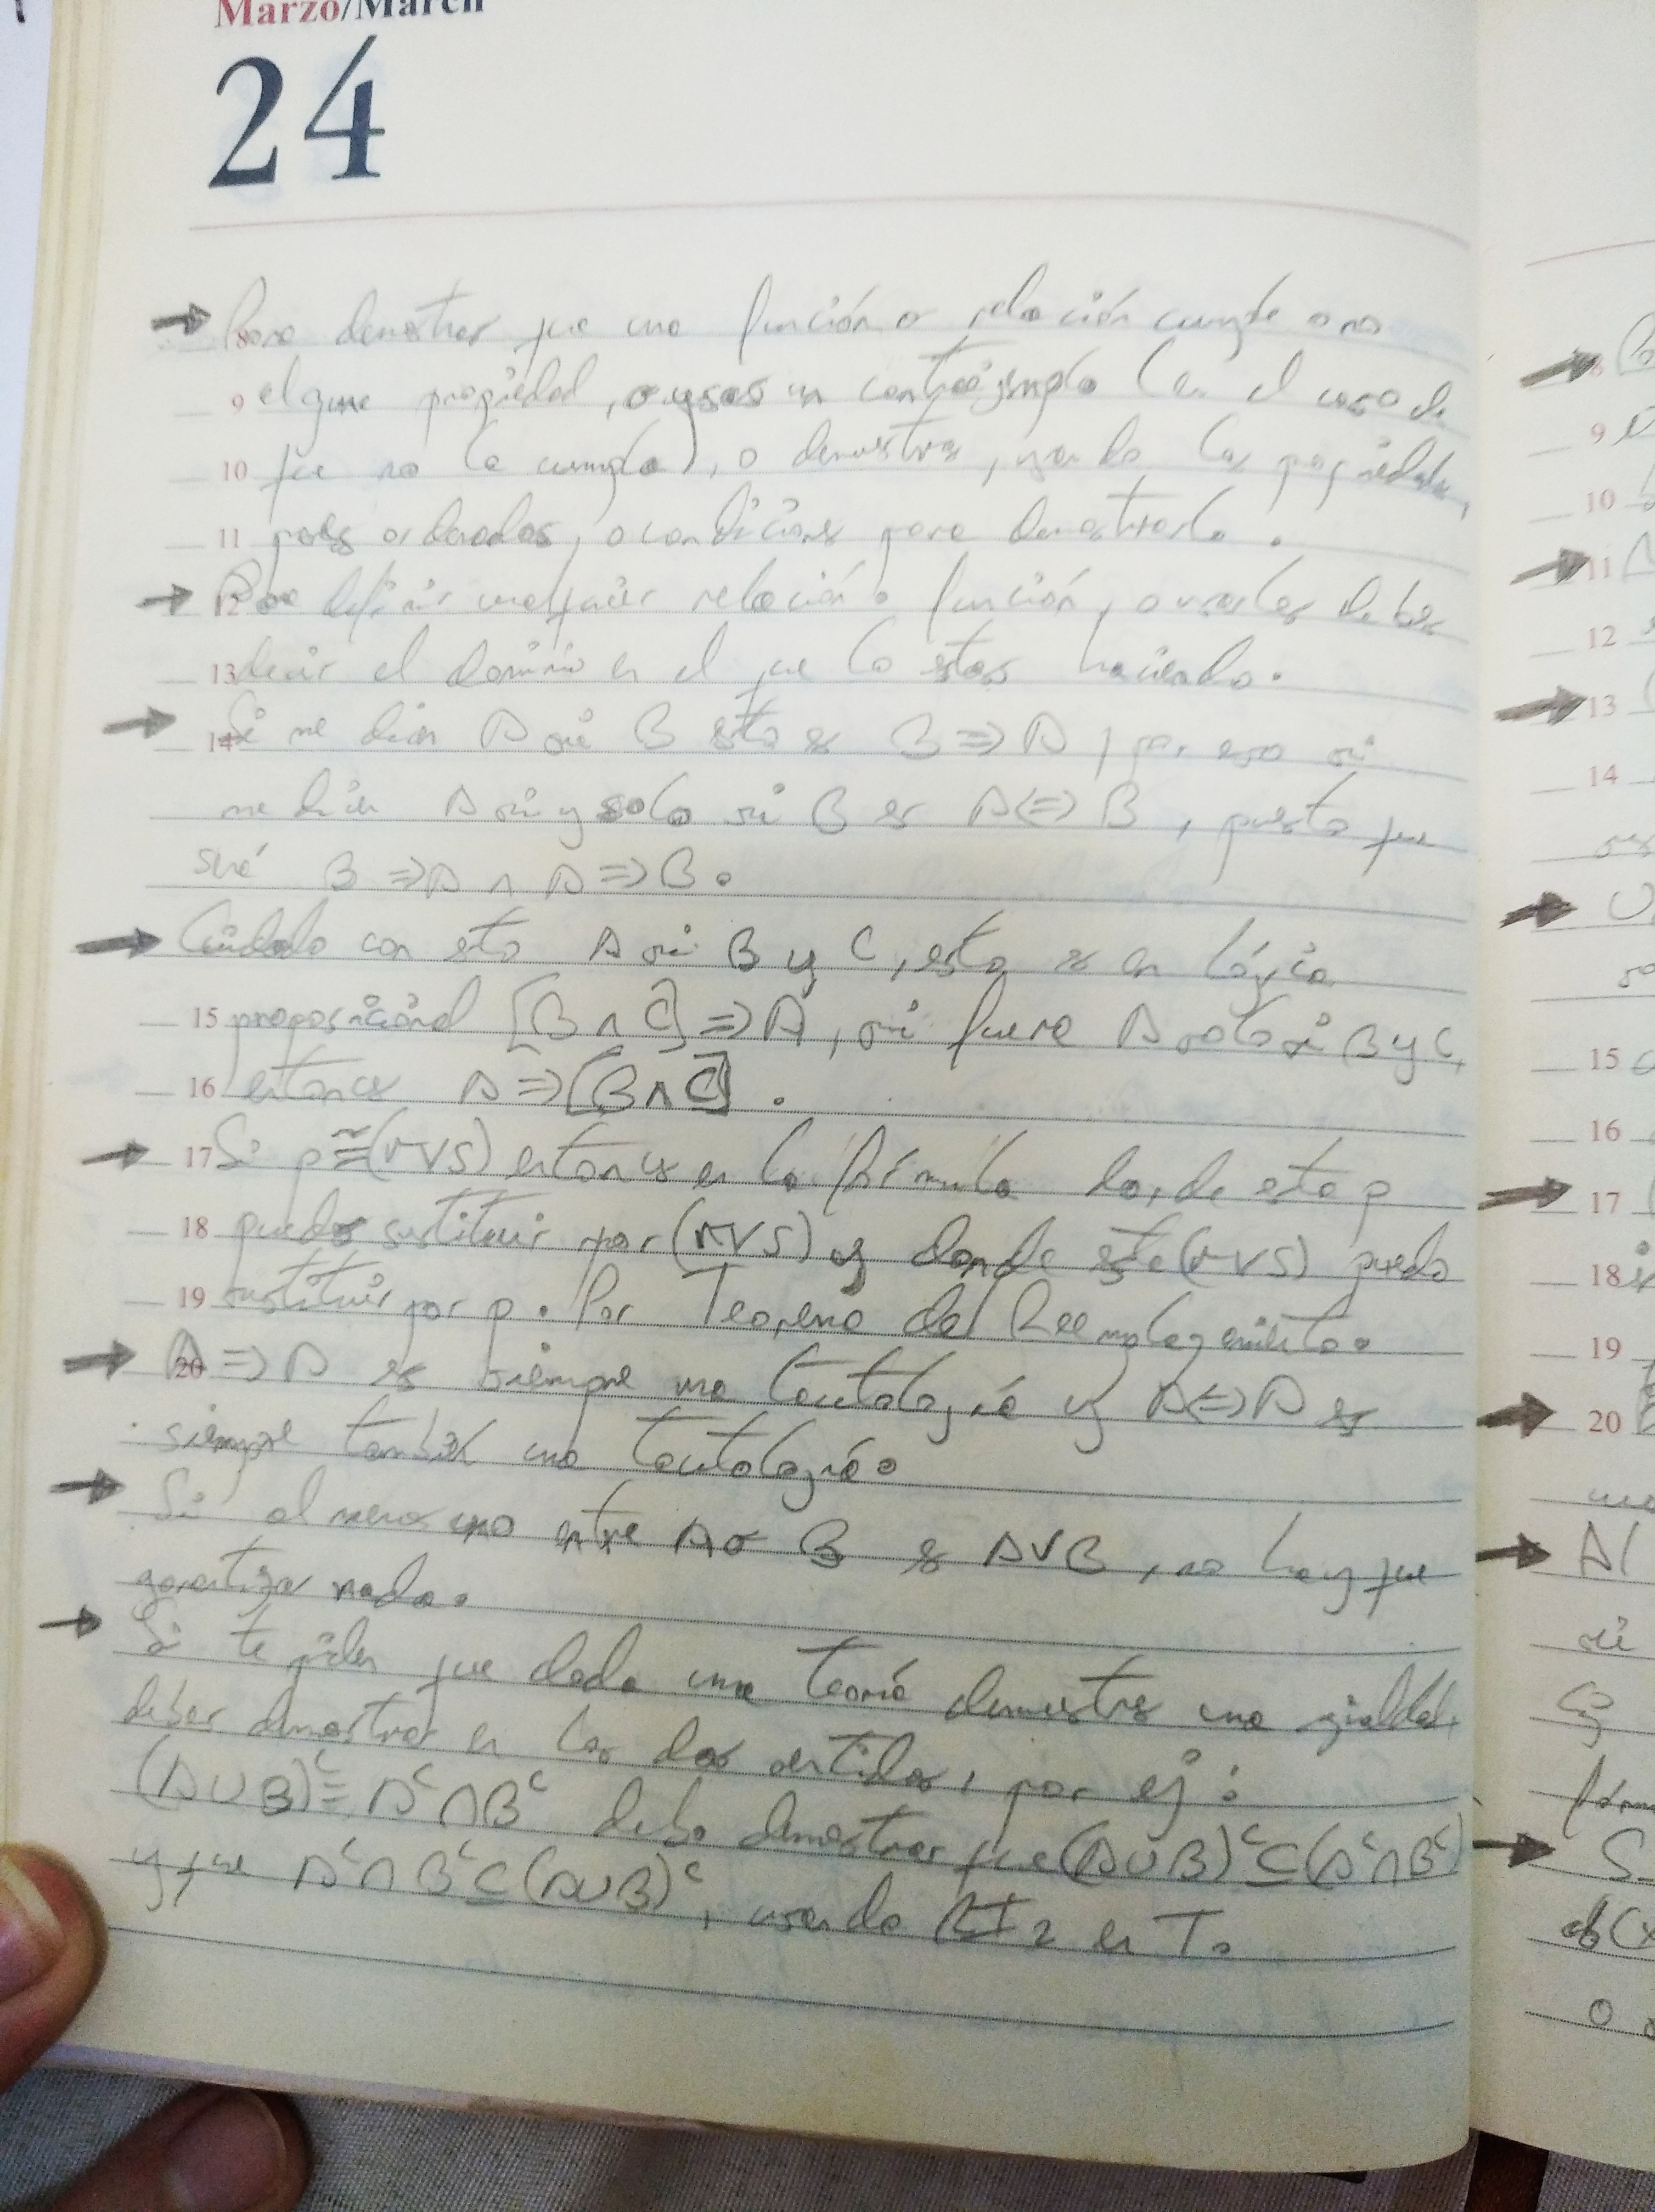 Marzo/March
24
→ Para demostrar que una función o relación cumple o no
8
9 alguna propiedad, o usas un contraejemplo (en el caso de
10 que no la cumpla), o demuestras, usando las propiedades,
11 pares ordenados, o condiciones para demostrarlo.
→ 12 Para definir cualquier relación o función, o usarlas debes
13 decir el dominio en el que lo estas haciendo.
→ 14 Si me dicen A si B esto es B ⇒ A, por eso si
me dicen A si y solo si B es A ⇔ B, puesto que
será B ⇒ A ∧ A ⇒ B.
→ Cuidado con esto A si B y C, esto es en lógica
15 proposicional [B ∧ C] ⇒ A, si fuera A solo si B y C,
16 entonces A ⇒ [B ∧ C].
→ 17 Si p ≅ (r ∨ s) entonces en la fórmula donde esta p
18 puedo sustituir por (r ∨ s) y donde este (r ∨ s) puedo
19 sustituir por p. Por Teorema del Reemplazamiento.
→ 20 A ⇒ A es siempre una tautología y A ⇔ A es
siempre también una tautología.
→ Si al menos uno entre A o B es A ∨ B, no hay que
garantizar nada.
→ Si te piden que dada una teoría demuestres una igualdad,
debes demostrar en los dos sentidos, por ej:
(A ∪ B)ᶜ = Aᶜ ∩ Bᶜ debo demostrar que (A ∪ B)ᶜ ⊆ (Aᶜ ∩ Bᶜ)
y que Aᶜ ∩ Bᶜ ⊆ (A ∪ B)ᶜ, usando 2 en T.
8
9
10
→ 11
12
→ 13
14
→
15
16
→ 17
18
19
→ 20
→ Al
si
→ S
o